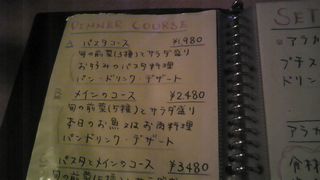 DINNER COURSE
A パスタコース ¥1,980
旬の前菜(5種)とサラダ盛り
お好みのパスタ料理
パン・ドリンク・デザート
B メインのコース ¥2,480
旬の前菜(5種)とサラダ盛り
本日のお魚又はお肉料理
パン・ドリンク・デザート
C パスタとメインのコース ¥3,480
旬の前菜(5種)とサラダ盛り
SET
・アラカ
プチス
ドリン
アラカ
食材